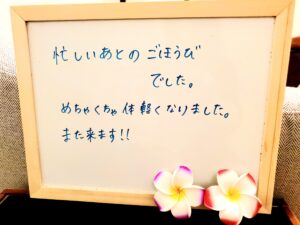 忙しいあとの ごほうび
でした。
めちゃくちゃ体軽くなりました。
また来ます!!